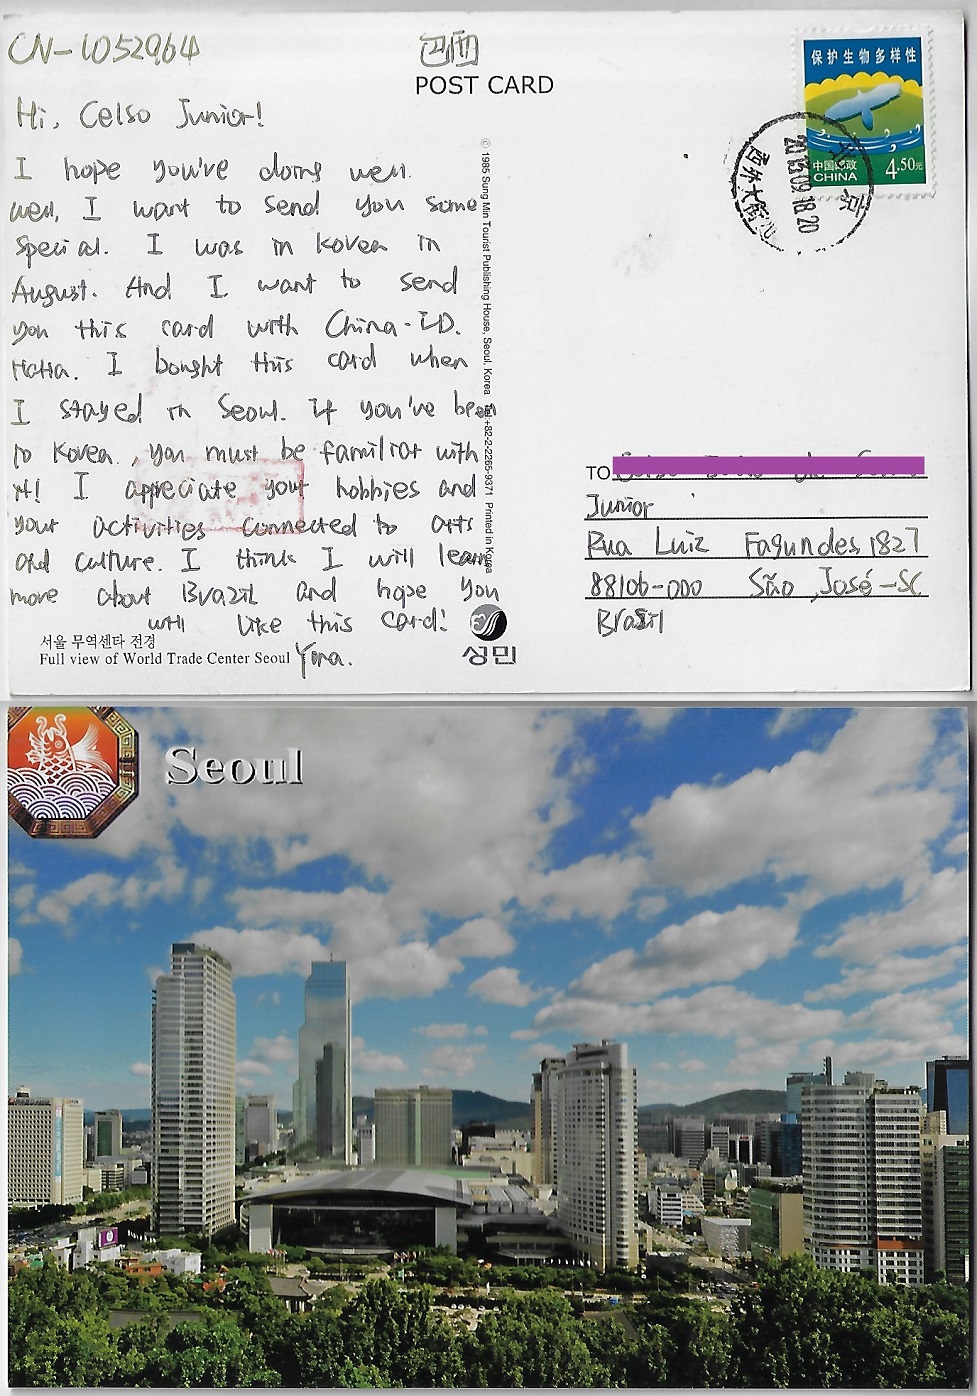 CN-1052964
巴西
POST CARD
Hi, Celso Junior!
I hope you've doing well.
Well, I want to send you some
special. I was in Korea in
August. And I want to send
you this card with China-ID.
Haha. I bought this card when
I stayed in Seoul. If you've been
to Korea, you must be familiar with
it! I appreciate your hobbies and
your activities connected to arts
and culture. I think I will learn
more about Brazil and hope you
will like this card!
Yona.
서울 무역센타 전경
Full view of World Trade Center Seoul
© 1985 Sung Min Tourist Publishing House, Seoul, Korea Tel +82-2-2265-9371 Printed in Korea
성민
保护生物多样性
中国邮政
CHINA
4.50元
北京
2013.09.18.20
西外大街
TO
Junior
Rua Luiz Fagundes 1827
88106-000 São José-SC
Brasil
Seoul